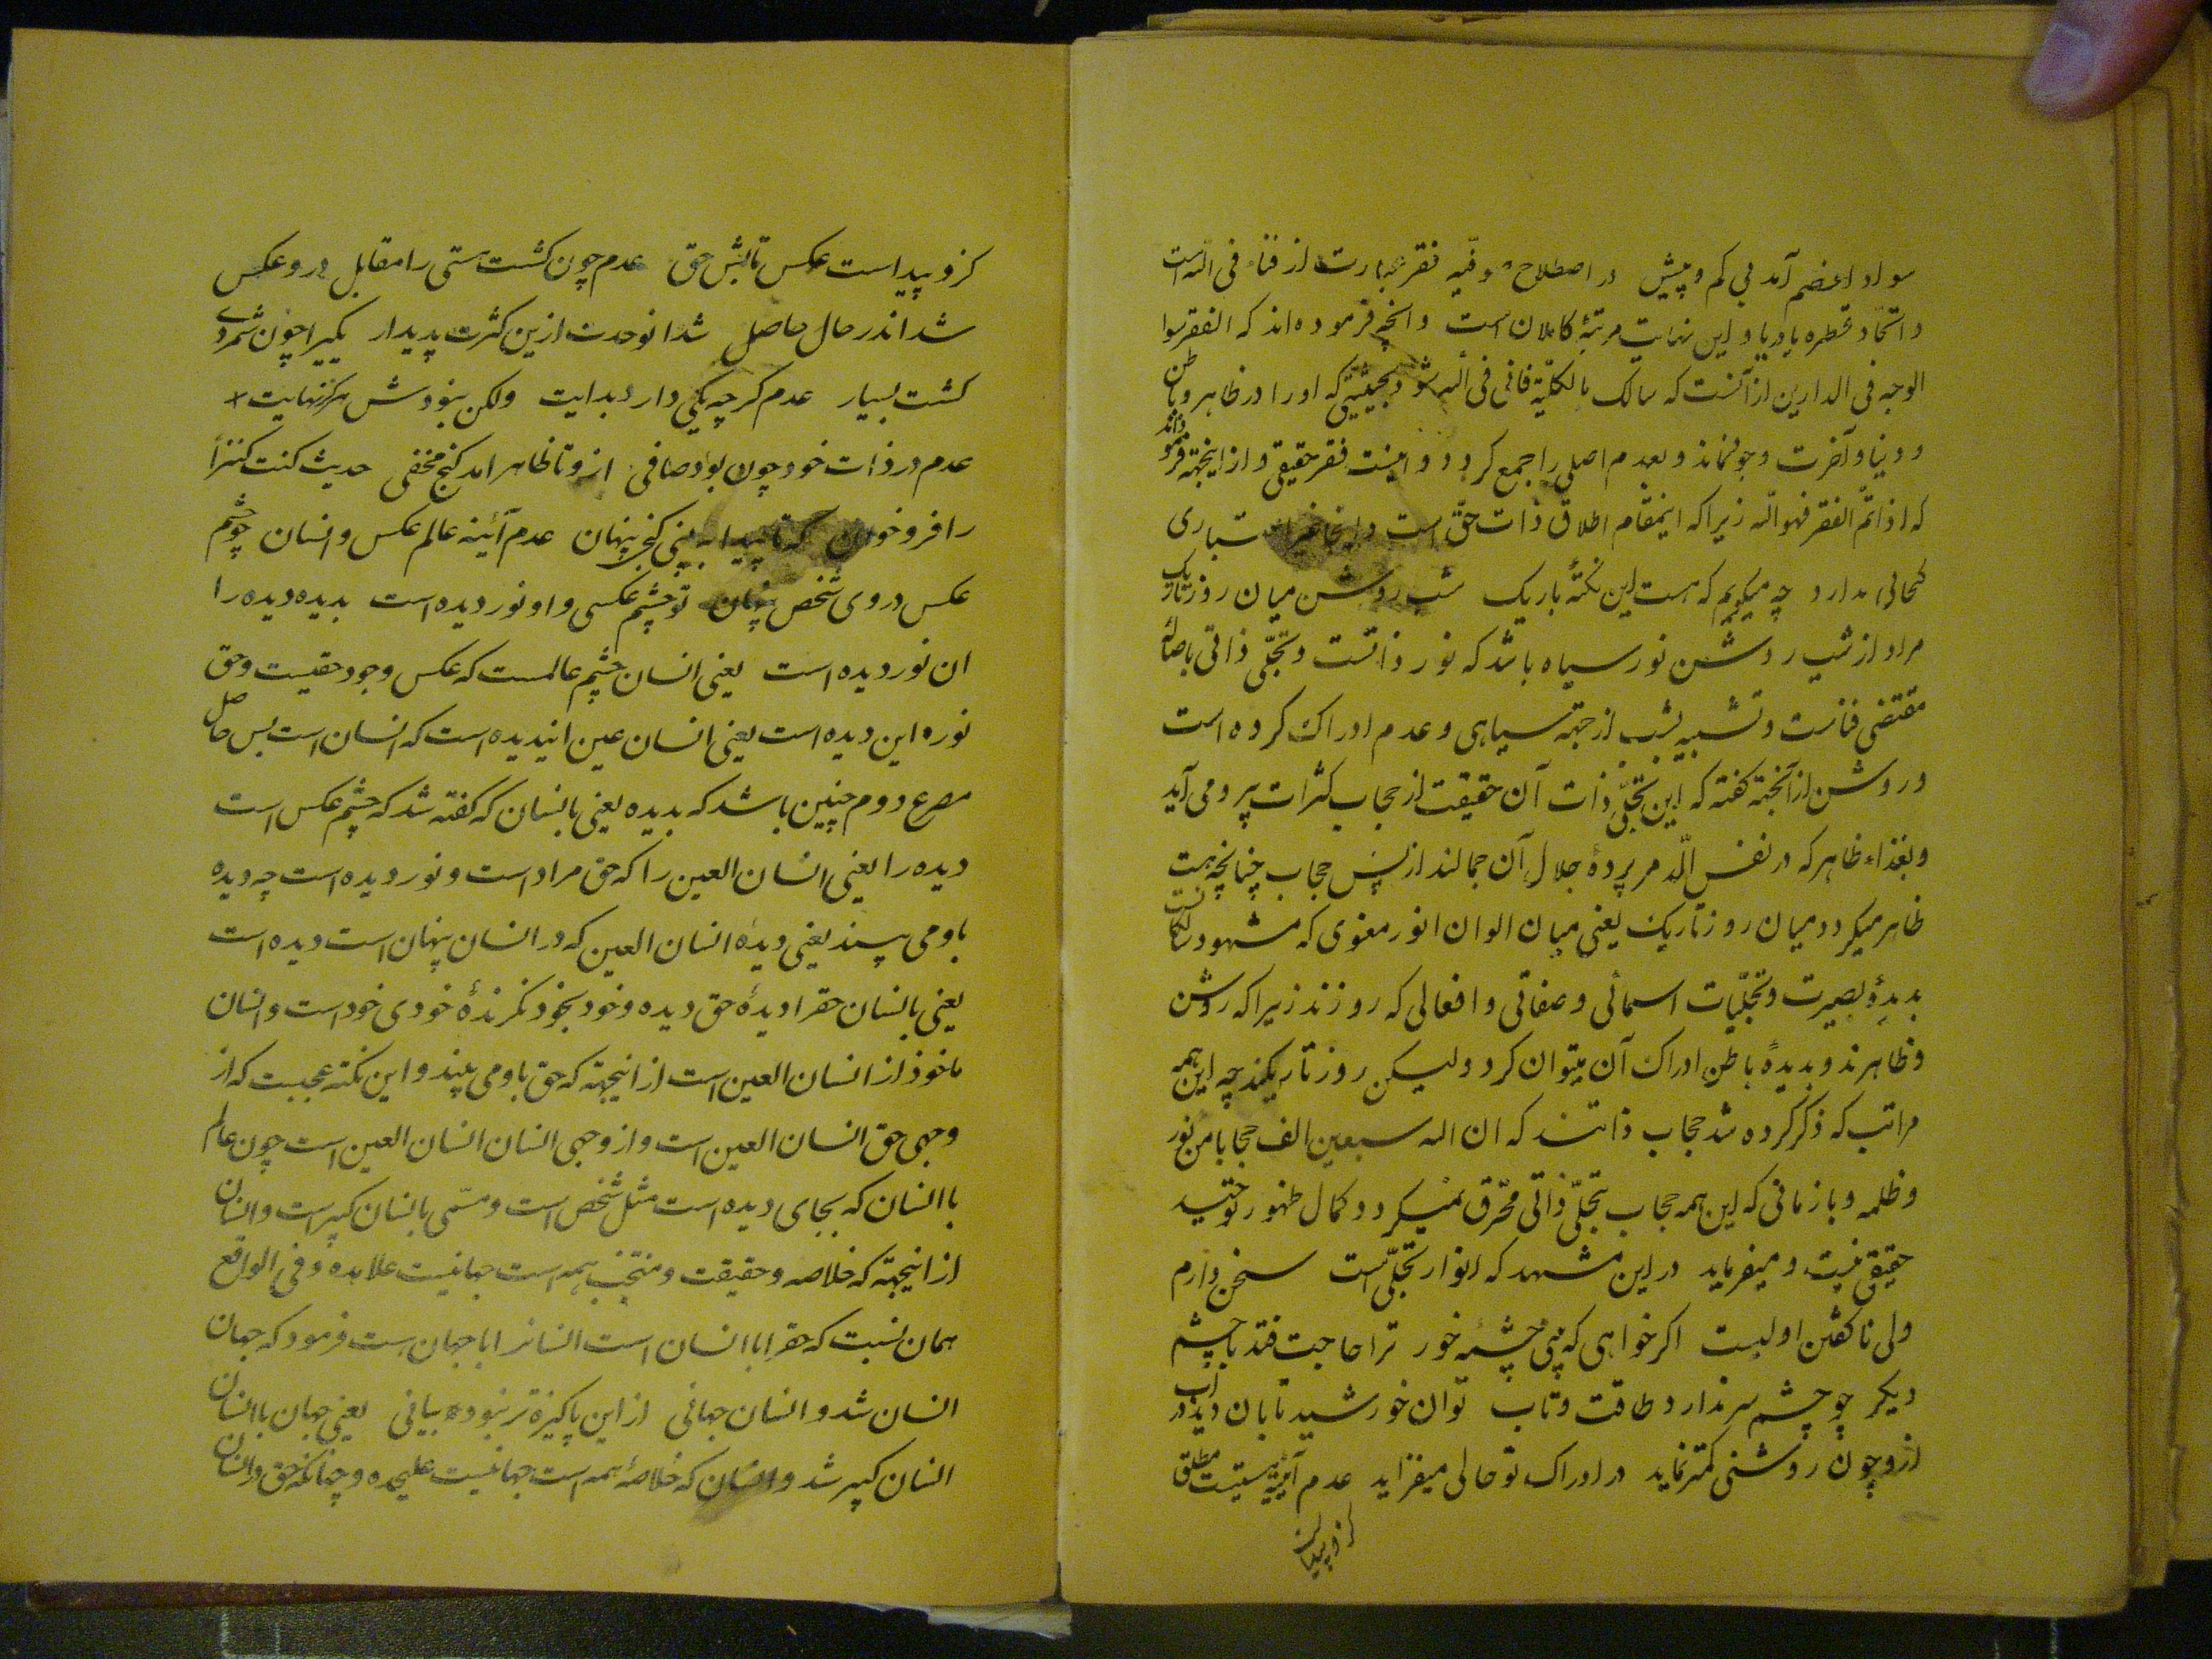 سواد اعضم آمد بی کم و بیش در اصطلاح صوفیه فقر عبارت از فناء فی الله است
و اتحاد قطره با دریا و این نهایت مرتبهٔ کاملان است و انچه فرموده اند که الفقر سواد
الوجه فی الدارین از آنست که سالک بالکلیّة فانی فی الله شود بحیثیتی که او را در ظاهر و باطن
و دنیا و آخرت وجود نماند و بعدم اصلی راجع کردد و اینست فقر حقیقی و از اینجهة فرموده‌اند
که اذا تمّ الفقر فهو الله زیرا که اینمقام اطلاق ذات حقّ است
چه میکویم که هست این نکتهٔ باریک شب روشن میان روز تاریک
مراد از شب روشن نور سیاه باشد که نور ذاتست و تجلّی ذاتی
مقتضی فناست و تشبیه بشب از جهة سیاهی و عدم ادراک کرده است
و روشن از آنجهة کفته که این تجلّی ذات آن حقیقت از حجاب کثرات بیرون می آید
ظاهر که در نفس پردهٔ جلال آن جمالند از پس حجاب چنانچه هست
ظاهر میکردد میان روز تاریک یعنی میان الوان انور معنوی که مشهود
بدیدهٔ بصیرت و تجلّیّات اسمائی و صفاتی و افعالی که روزند زیرا که روشن
و ظاهرند و بدیدهٔ باطن ادراک آن میتوان کرد ولیکن روز تاریکند چه این همه
مراتب که ذکر کرده شد حجاب ذاتند که ان لله سبعین الف حجابا من نور
و ظلمه و تا زمانی که این همه حجاب بتجلّی ذاتی محترق نمیکردد کمال ظهور توحید
حقیقی نیست و میفرماید در این مشهد که انوار تجلّی است سخن دارم
ولی ناکفتن اولیست اکر خواهی که بینی چشمهٔ خور ترا حاجت فتد با چشم
دیکر چو چشم سر ندارد طاقت و تاب توان خورشید تابان دید در آب
ازو چون روشنی کمتر نماید در ادراک تو حالی میفزاید عدم آئینهٔ هستیست مطلق
کزو پیداست
کزو پیداست عکس تابش حق عدم چون کشت هستی را مقابل درو عکسی
شد اندر حال حاصل شد انوحدت ازین کثرت پدیدار یکی را چون شمردی
کشت بسیار عدم کرچه یکی دارد بدایت ولکن نبودش هرکز نهایت
عدم در ذات خود چون بود صافی ازو تا ظاهر امد کنج مخفی حدیث کنت کنزاً
را فرو خوان که تا پیدا به بینی کنج پنهان عدم آئینه عالم عکس و انسان چو چشم
عکس در وی شخص پنهان تو چشم عکسی و او نور دیده است بدیده دیده را
ان نور دیده است یعنی انسان چشم عالمست که عکس وجود حقیست و حق
نور این دیده است یعنی انسان عین انیدیده است که انسان است پس حاصل
مصرع دوم چنین باشد که بدیده یعنی بانسان که کفته شد که چشم عکس است
دیده را یعنی انسان العین را که حق مراد است و نور دیده است چه دیده
باو می بیند یعنی دیدهٔ انسان العین که در انسان پنهان است دیده است
یعنی بانسان حقرا دیدهٔ حق دیده و خود بخود نکرندهٔ خودی خود است و انسان
ماخوذ از انسان العین است از اینجهة که حق باو می بیند و این نکته عجیبست که از
وجهی حق انسان العین است و از وجهی انسان انسان العین است چون عالم
با انسان که بجای دیده است مثل شخص است و مسمّی بانسان کبیر است و انسان
از اینجهة که خلاصه و حقیقت و منتخب همه است جهانیست علاحده و فی الواقع
همان نسبت که حقرا با انسان است انسانرا با جهان است فرمود که جهان
انسان شد و انسان جهانی از این پاکیزه تر نبود بیانی یعنی جهان با انسان
انسان کبیر شد و انسان که خلاصهٔ همه است جهانیست علیحده و چنانکه حق در انسان